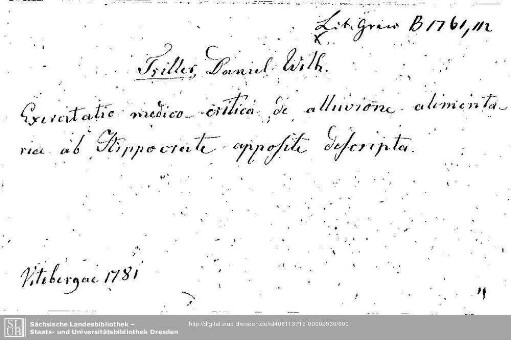 Lit. Graec B 1761, m
Triller, Daniel Wilh.
Exercitatio medico-critica de alluvione alimenta-
riae ab Hippocrate apposite descripta.
Vitebergae 1781
4
SLUB
Sächsische Landesbibliothek –
Staats- und Universitätsbibliothek Dresden